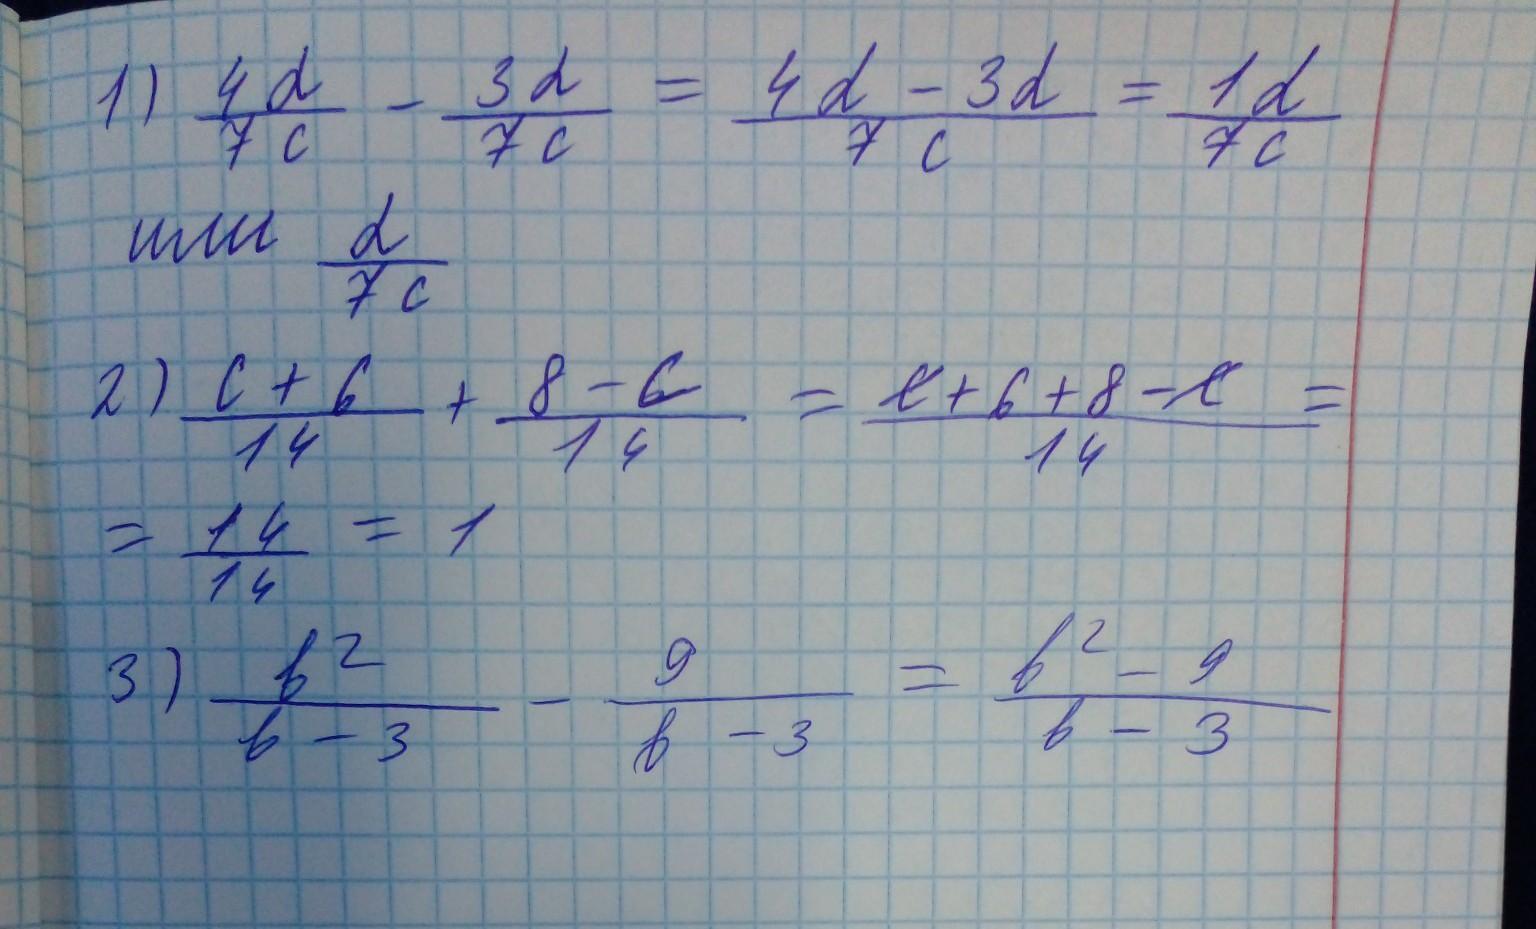 1) 4d/7c - 3d/7c = 4d - 3d/7c = 1d/7c
или d/7c
2) c + 6/14 + 8 - c/14 = c + 6 + 8 - c/14 =
= 14/14 = 1
3) b²/b - 3 - 9/b - 3 = b² - 9/b - 3